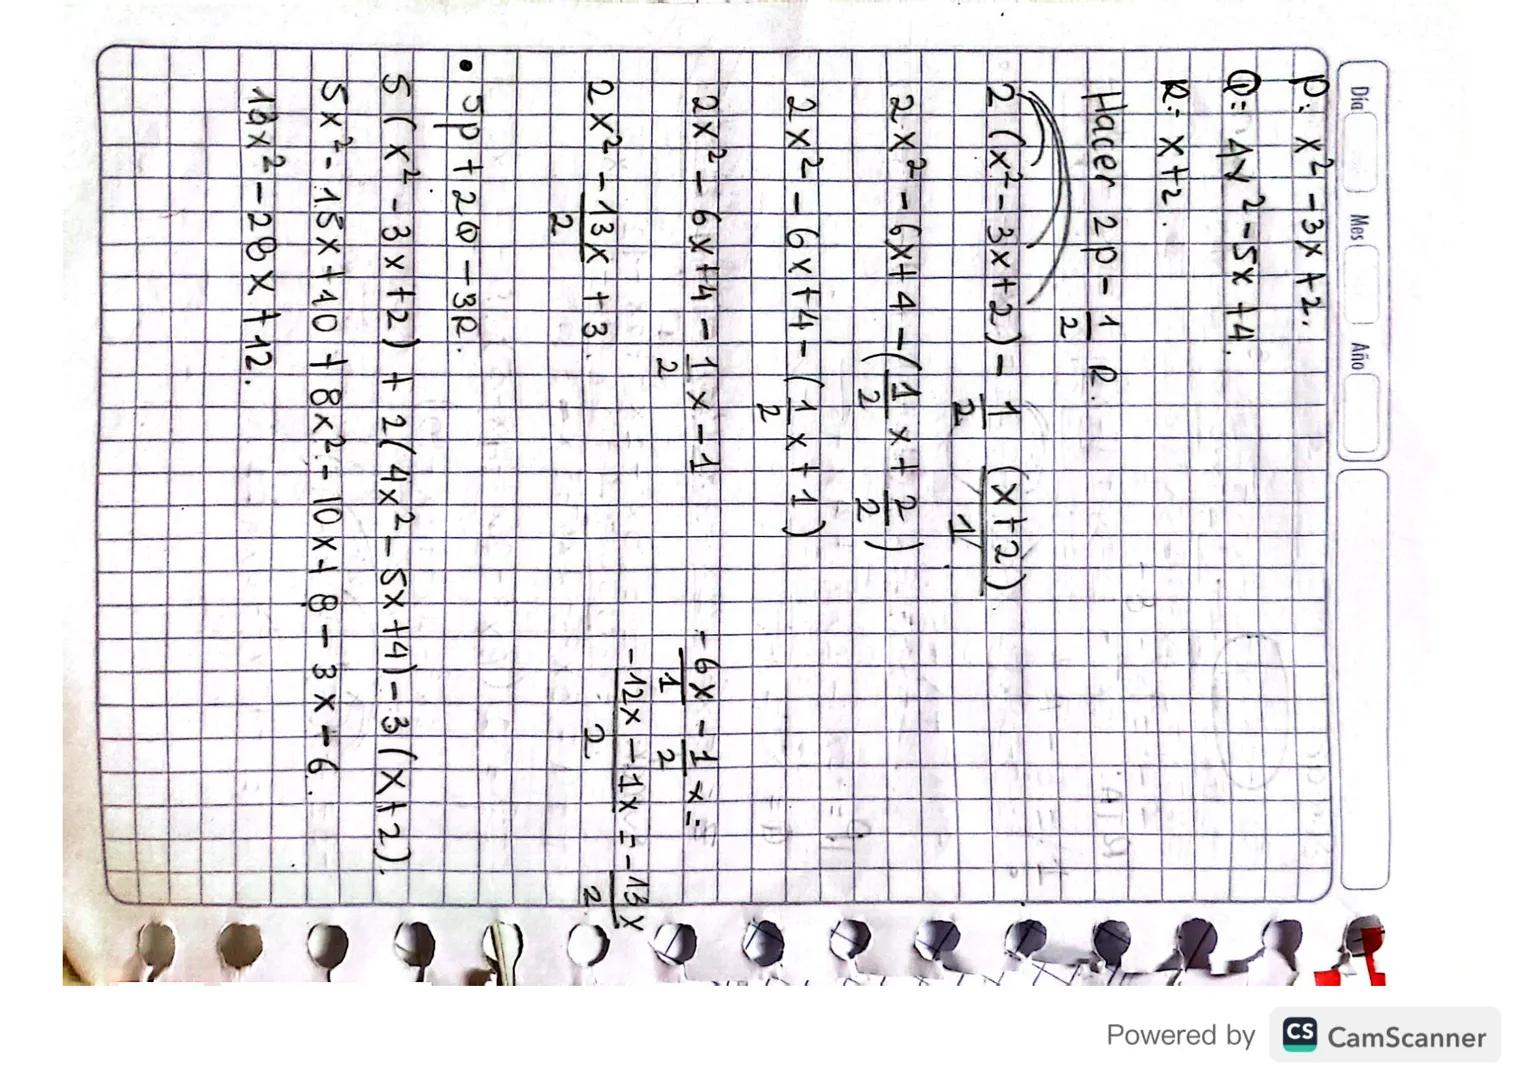 Día Mes Año
P: x² - 3x + 2.
Q: 4x² - 5x + 4.
R: x + 2.
Hacer 2P - 1/2 R.
2 (x² - 3x + 2) - 1/2 (x + 2)/1
2x² - 6x + 4 - (1/2 x + 2/2)
2x² - 6x + 4 - (1/2 x + 1)
2x² - 6x + 4 - 1/2 x - 1
-6x/1 - 1/2 x =
2x² - 13x/2 + 3.
-12x - 1x/2 = -13x/2
• 5P + 2Q - 3R.
5 (x² - 3x + 2) + 2(4x² - 5x + 4) - 3(x + 2).
5x² - 15x + 10 + 8x² - 10x + 8 - 3x - 6.
13x² - 28x + 12.
Powered by CS CamScanner